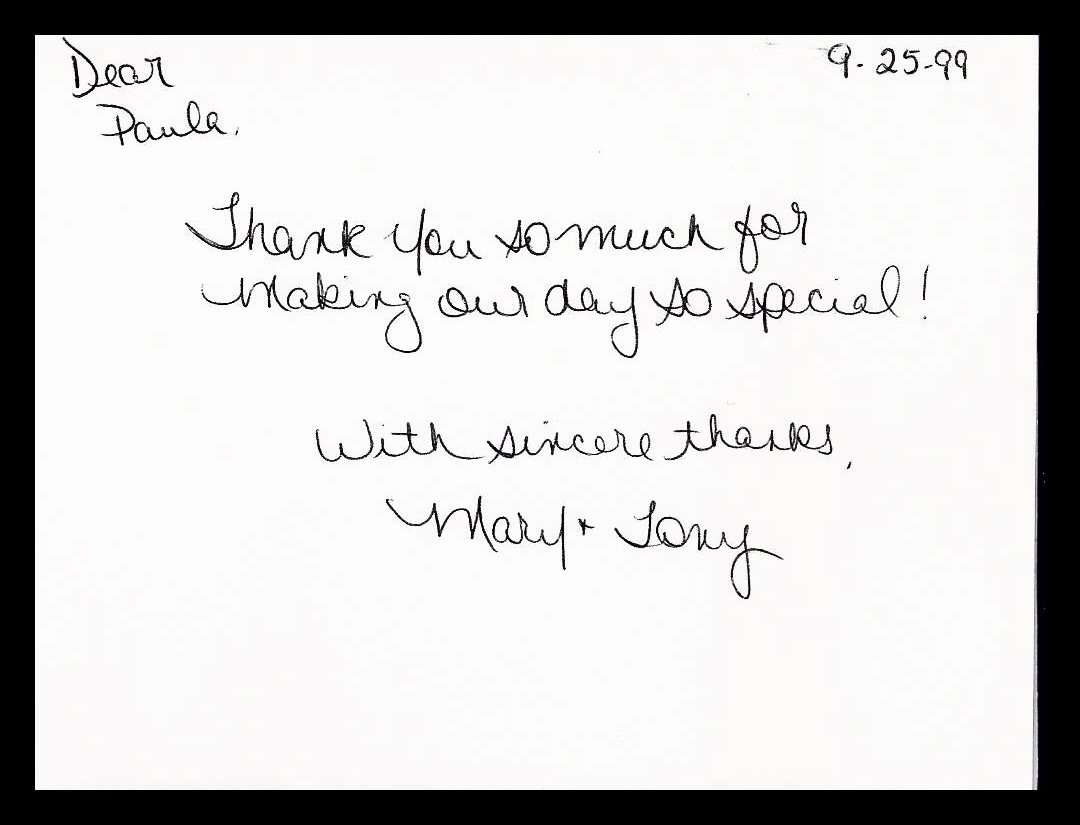 9-25-99
Dear
Paula,
Thank you so much for
making our day so special!
With sincere thanks,
Mary + Tony